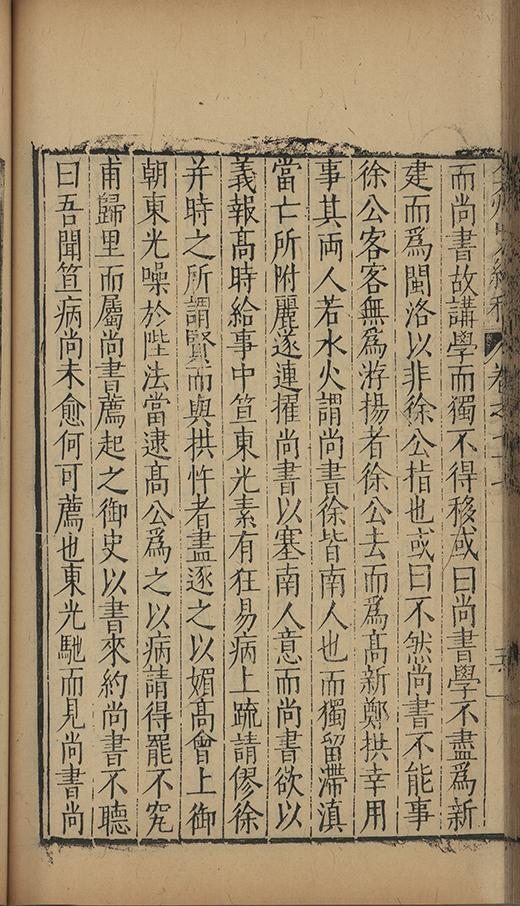 而尚書故講學而獨不得移或曰尚書學不盡為新
建而為閩洛以非徐公指也或曰不然尚書不能事
徐公客客無為游揚者徐公去而為高新鄭拱幸用
事其両人若水火謂尚書徐皆南人也而獨留滯滇
當亡所附麗遂連擢尚書以塞南人意而尚書欲以
義報髙時給事中笪東光素有狂易病上䟽請僇徐
并時之所謂賢而與拱忤者盡逐之以媚髙會上御
朝東光噪於陛法當逮髙公為之以病請得罷不究
甫歸里而屬尚書薦起之御史以書來約尚書不聽
曰吾聞笪病尚未愈何可薦也東光馳而見尚書尚